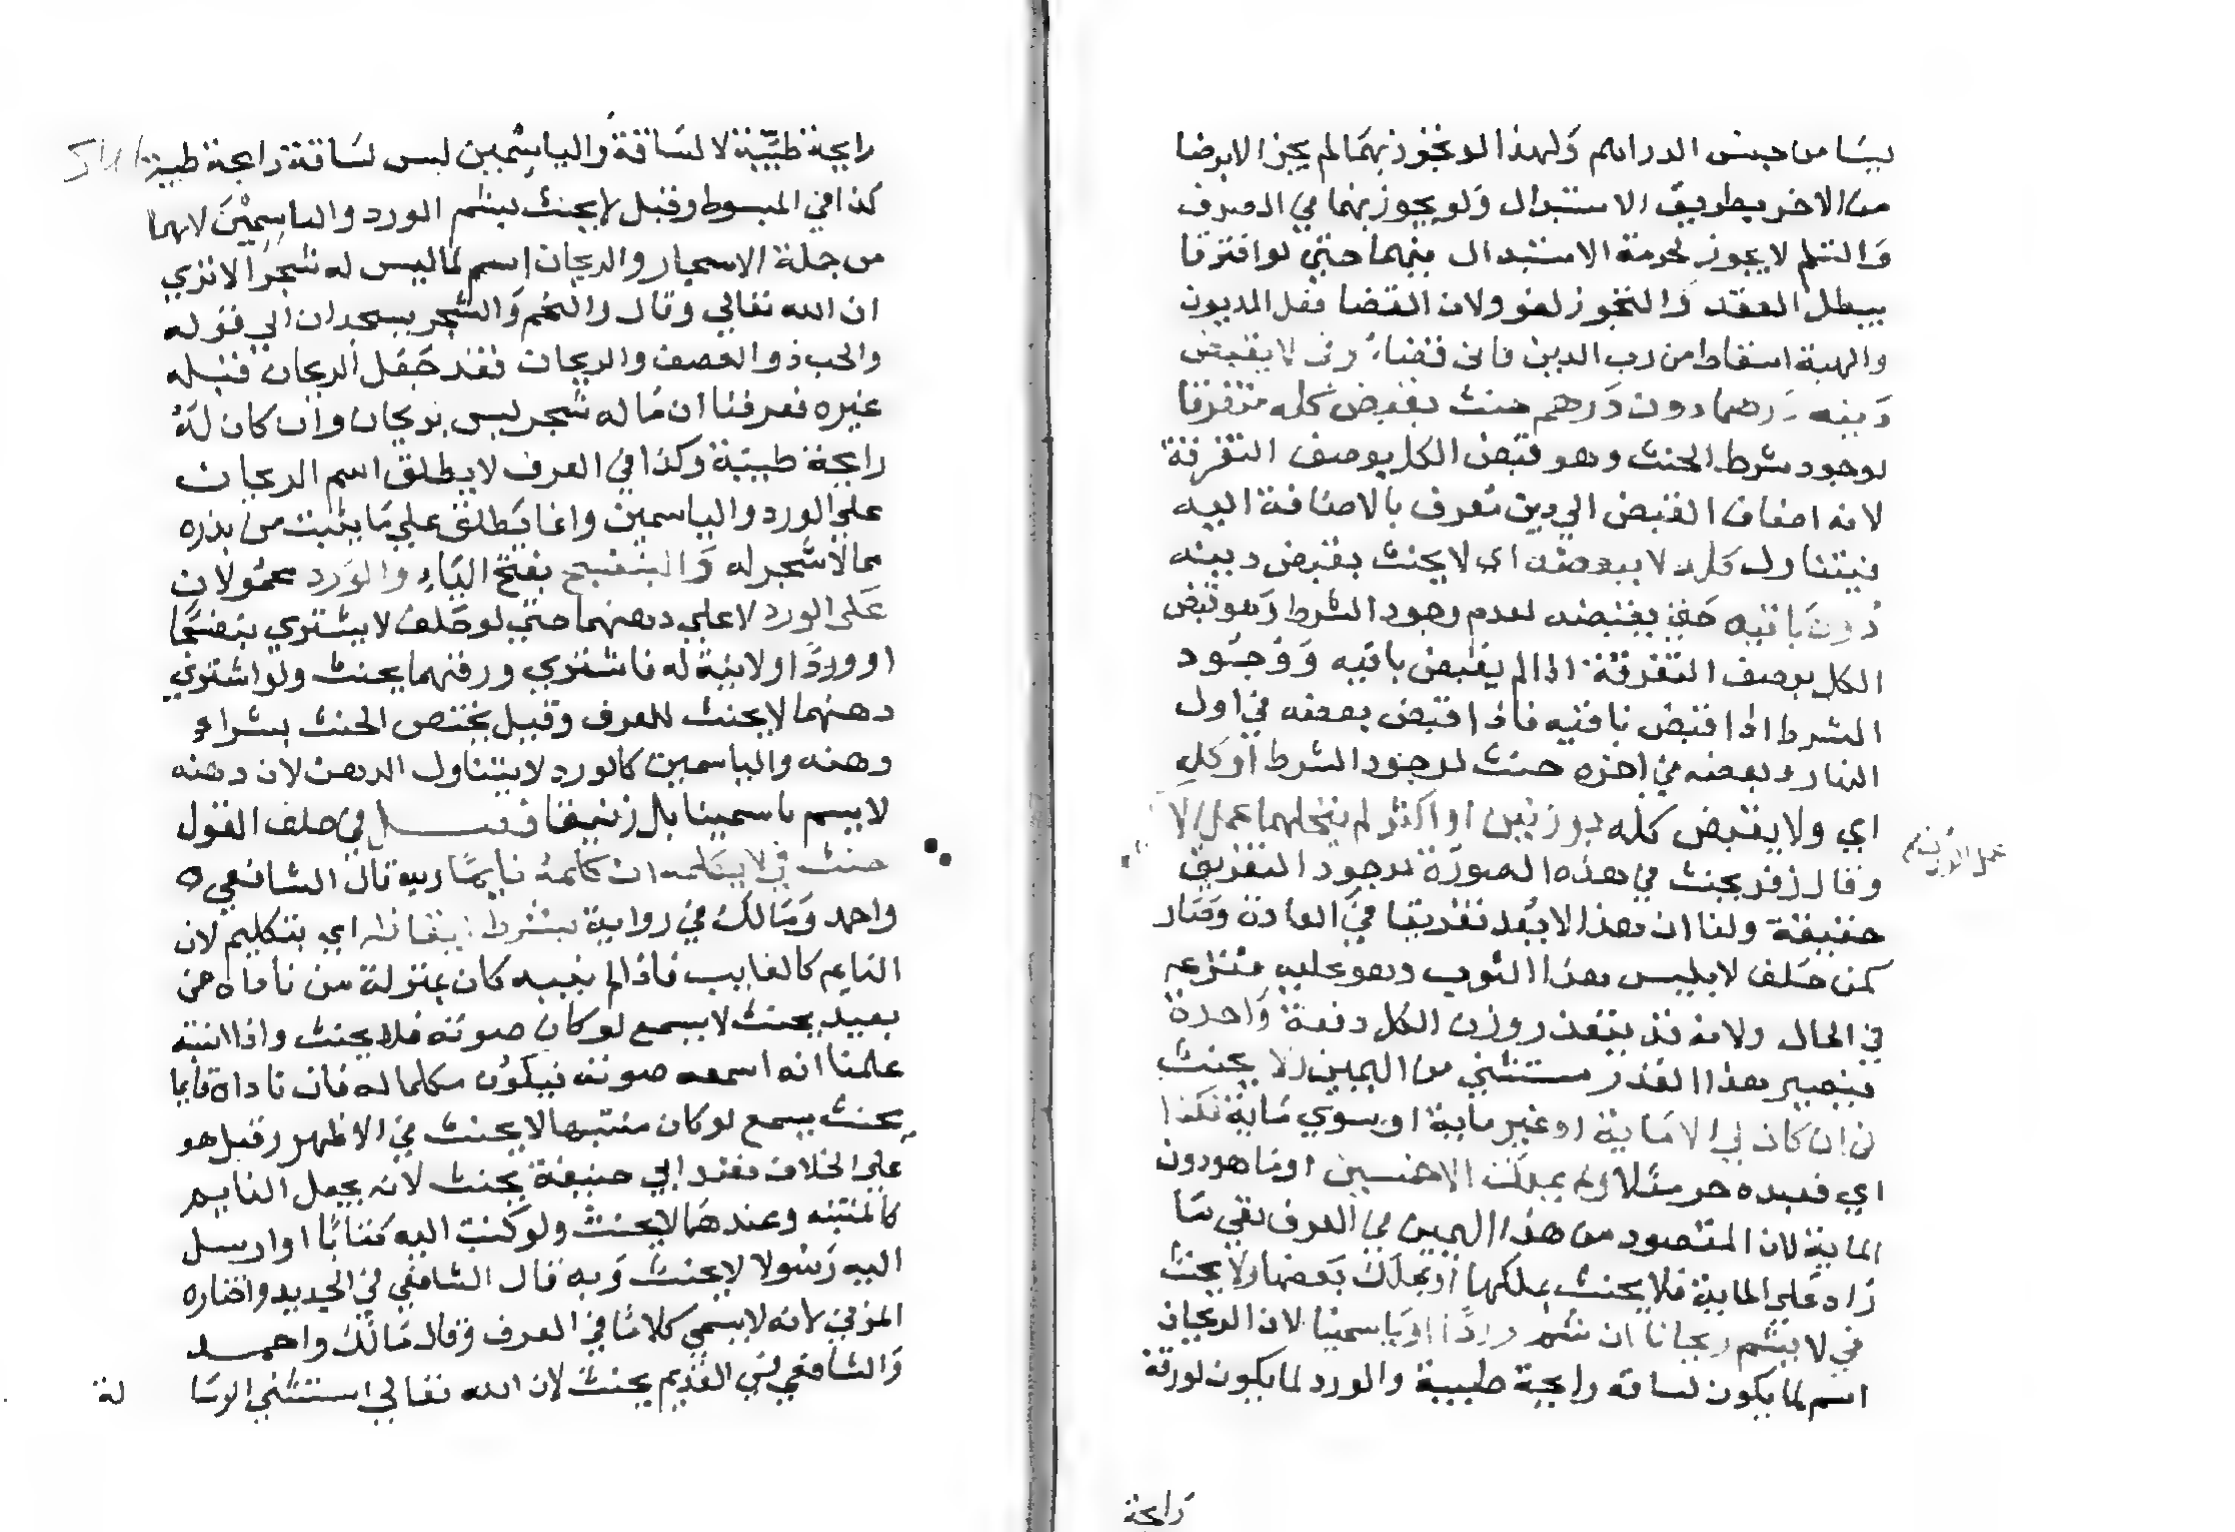 ليسا من جنس الدراهم ولهذا لو تجوز بهما لم يجز الا برضا
من الاخر بطريق الاستبدال ولو يجوز بهما في الصرف
والسلم لا يجوز لحرمة الاستبدال بينهما حتى لو افترقا
يبطل العقد والتجوز لغو ولان القضا فعل المديون
والهبة اسقاط من رب الدين فانى قضاء وفى لا يقبض
دينه درهما دون درهم حنث بقبض كله متفرقا
لوجود شرط الحنث وهو قبض الكل بوصف التفرقة
لانه اضاف القبض الي دين معرف بالاضافة اليه
فيتناول كله لا ببعضه اي لا يحنث بقبض دينه
دون باقيه حتى يقبضه لعدم وجود الشرط وهو قبض
الكل بوصف التفرقة اذا لم يقبض باقيه ووجود
الشرط اذا قبض باقيه فاذا قبض بعضه في اول
النهار وبعضه في اخره حنث لوجود الشرط او كله
اي ولا يقبض كله بوزنين او اكثر لم يتخللهما عمل الا
وقال زفر يحنث في هذه الصورة لوجود التفريق
حقيقة ولنا ان هذا لا يعد تفريقا في العادة وصار
كمن حلف لا يلبس هذا الثوب وهو عليه فنزعه
في الحال ولانه قد يتعذر وزن الكل دفعة واحدة
فيصير هذا القدر مستثني من اليمين ولا يحنث
في ان كان لي الا ماية او غير ماية او سوي ماية فكذا
اي فعبده حر مثلا ولم يملك الا خمسين او ما هو دون
الماية لان المقصود من هذا اليمين في العرف نفي ما
زاد على الماية فلا يحنث بملكها او بملك بعضها ولا يحنث
في لا يشم ريحانا ان شم وردا او ياسمينا لان الريحان
اسم لما يكون لساقه رايحة طيبة والورد لما يكون لورقه
رايحة
رايحة طيبة لا لساقه والياسمين ليس لساقه رايحة طيبة
كذا في المبسوط وقيل لا يحنث بشم الورد والياسمين لانهما
من جملة الاشجار والريحان اسم لما ليس له شجر الا تري
ان الله تعالي وقال والنجم والشجر يسجدان الي قوله
والحب ذو العصف والريحان فقد جعل الريحان قبله
غيره فعرفنا ان ما له شجر ليس بريحان وان كان له
رايحة طيبة وكذا في العرف لا يطلق اسم الريحان
علي الورد والياسمين وانما يطلق علي ما ينبت من بذره
مما لا شجر له والبنفسج بفتح الباء والورد محمولان
على الورد لا علي دهنهما حتي لو حلف لا يشتري بنفسجا
او وردا ولا نية له فاشتري ورقهما يحنث ولو اشتري
دهنهما لا يحنث للعرف وقيل يختص الحنث بشراء
دهنه والياسمين كالورد لا يتناول الدهن لان دهنه
لا يسم ياسمينا بل زنبقا فصل في حلف القول
حنث في لا يكلمه ان كلمه نايما وبه قال الشافعي
واحمد ومالك في رواية بشرط ايقاظه اي بتكليم لان
النايم كالغايب فاذا لم يجبه كان بمنزلة من ناداه من
بعيد بحيث لا يسمع لو كان صوته فلا يحنث واذا انتبه
علمنا انه اسمعه صوته فيكون مكلما له فان ناداه نايما
بحيث يسمع لو كان منتبها لا يحنث في الاظهر وقيل هو
علي الخلاف فعند ابي حنيفة يحنث لانه يجعل النايم
كالمنتبه وعندهما لا يحنث ولو كتب اليه كتابا او ارسل
اليه رسولا لا يحنث وبه قال الشافعي في الجديد واختاره
المزني لانه لا يسمي كلاما في العرف وقال مالك واحمد
والشافعي في القديم يحنث لان الله تعالي استثني الرسا
لة